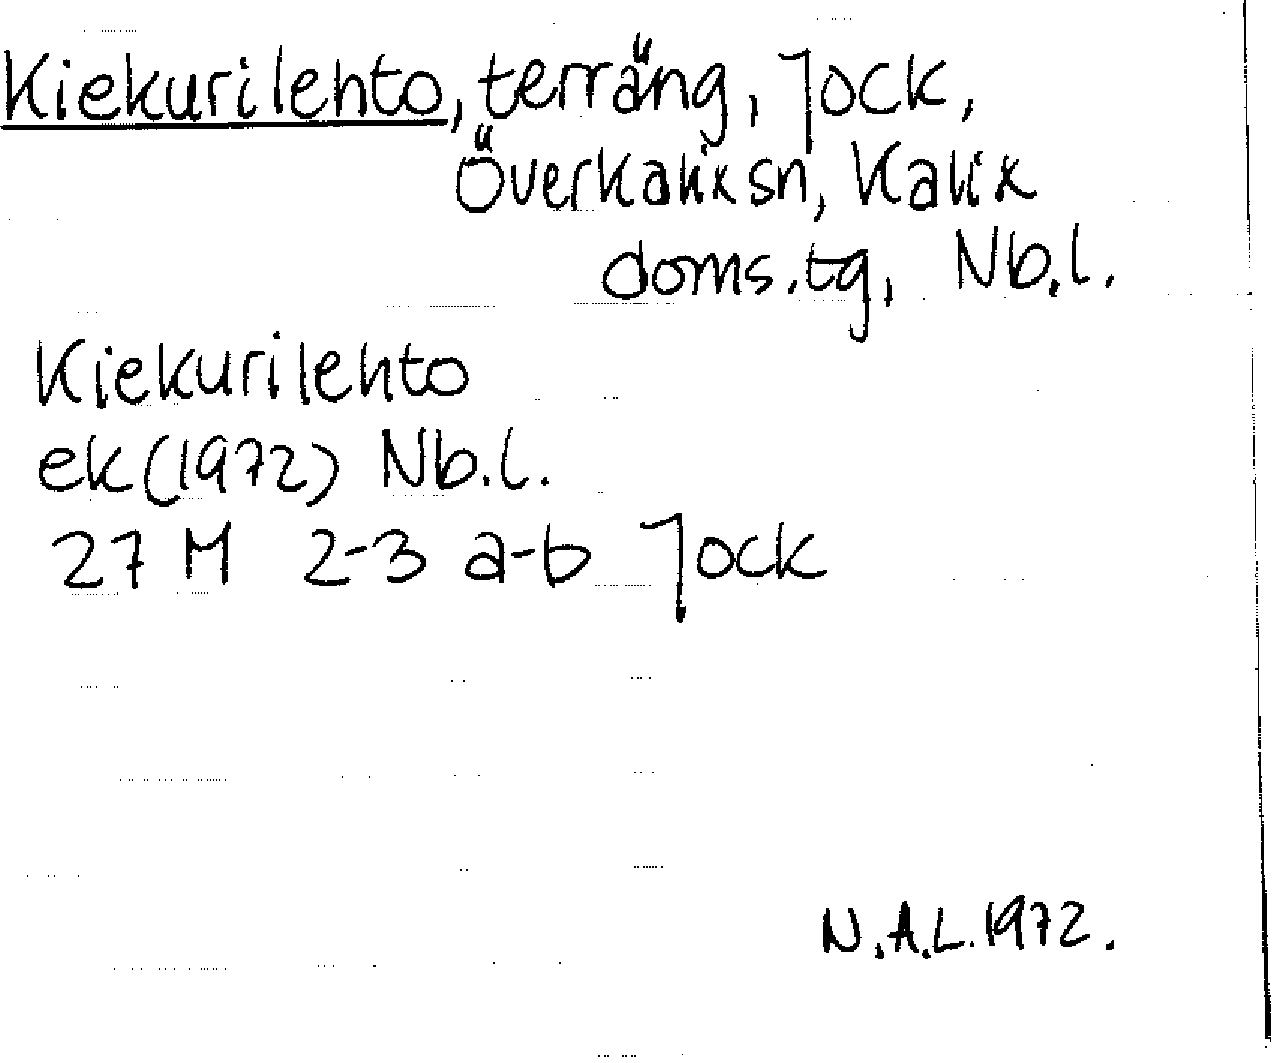 Kiekurilehto, terräng, Jock,
Överkalix sn, Kalix
doms.tg, Nb.l.
Kiekurilehto
ek (1972) Nb.l.
27 M 2-3 a-b Jock
N.A.L. 1972.